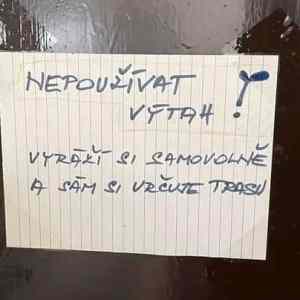 NEPOUŽÍVAT
VÝTAH!
VYRÁŽÍ SI SAMOVOLNĚ
A SÁM SI URČUJE TRASU